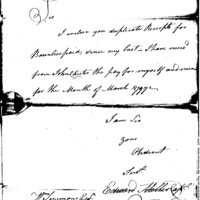 Sir
I inclose you duplicate Receipts for
Bounties paid, since my last. I have rec'd
from the pay for myself and men
for the Month of March 1797.
I am Sir
your
Obedient
Servt
Edward Miller Capt
Wm Simmons Esqr